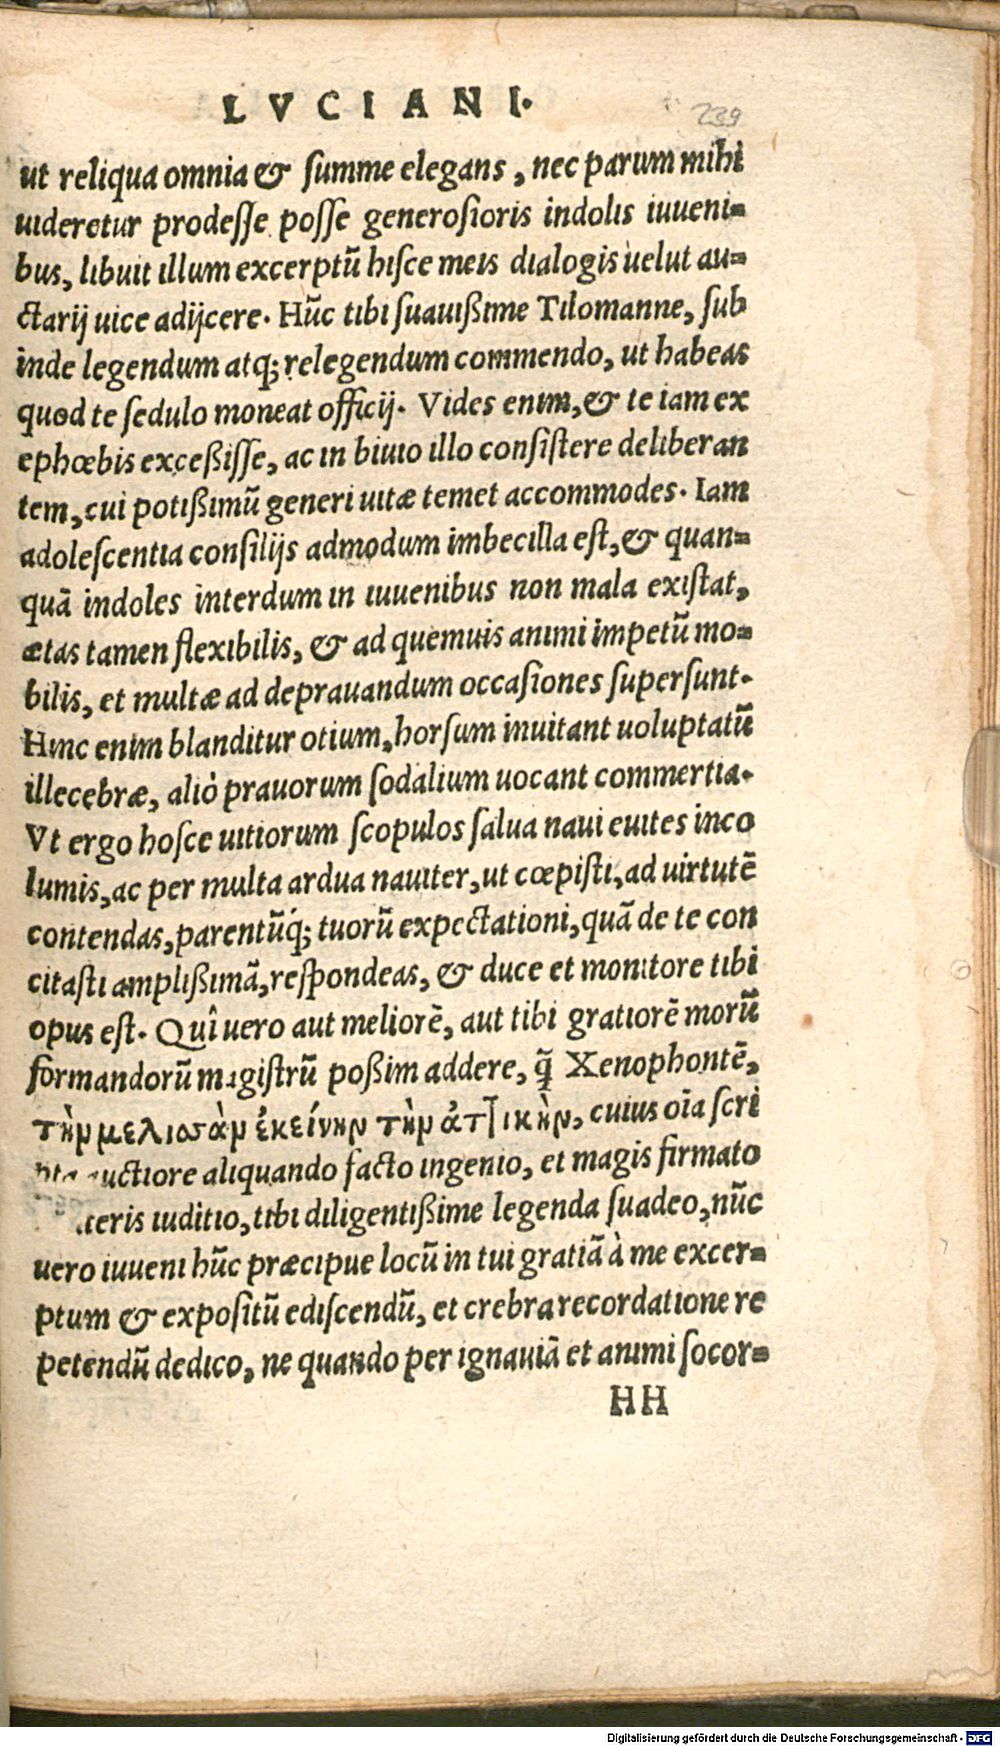 LVCIANI.
239
ut reliqua omnia & ſumme elegans, nec parum mihi
uideretur prodeſſe poſſe generoſioris indolis iuueni-
bus, libuit illum excerptũ hiſce meis dialogis uelut au-
ctarij uice adijcere. Hũc tibi ſuauiſſime Tilomanne, ſub
inde legendum atq; relegendum commendo, ut habeas
quod te ſedulo moneat officij. Vides enim, & te iam ex
ephœbis exceſſiſſe, ac in biuio illo conſiſtere deliberan
tem, cui potiſſimũ generi uitæ temet accommodes. Iam
adoleſcentia conſilijs admodum imbecilla eſt, & quan-
quã indoles interdum in iuuenibus non mala exiſtat,
ætas tamen flexibilis, & ad quemuis animi impetũ mo-
bilis, et multæ ad deprauandum occaſiones ſuperſunt.
Hinc enim blanditur otium, horſum inuitant uoluptatũ
illecebræ, aliò prauorum ſodalium uocant commertia.
Vt ergo hoſce uitiorum ſcopulos ſalua naui euites inco
lumis, ac per multa ardua nauiter, ut cœpiſti, ad uirtutẽ
contendas, parentũq́; tuorũ expectationi, quã de te con
citaſti ampliſſimã, reſpondeas, & duce et monitore tibi
opus eſt. Quî uero aut meliorẽ, aut tibi gratiorẽ morũ
formandorũ magiſtrũ poſſim addere, q̃ Xenophontẽ,
τὴν μελισσὰν ἐκείνην τὴν ἀττικὴν, cuius oĩa ſcri
pta auctiore aliquando facto ingenio, et magis firmato
ceteris iuditio, tibi diligentiſſime legenda ſuadeo, nũc
uero iuueni hũc præcipue locũ in tui gratiã à me excer-
ptum & expoſitũ ediſcendũ, et crebra recordatione re
petendũ dedico, ne quando per ignauiã et animi ſocor-
HH
Digitalisierung gefördert durch die Deutsche Forschungsgemeinschaft - DFG